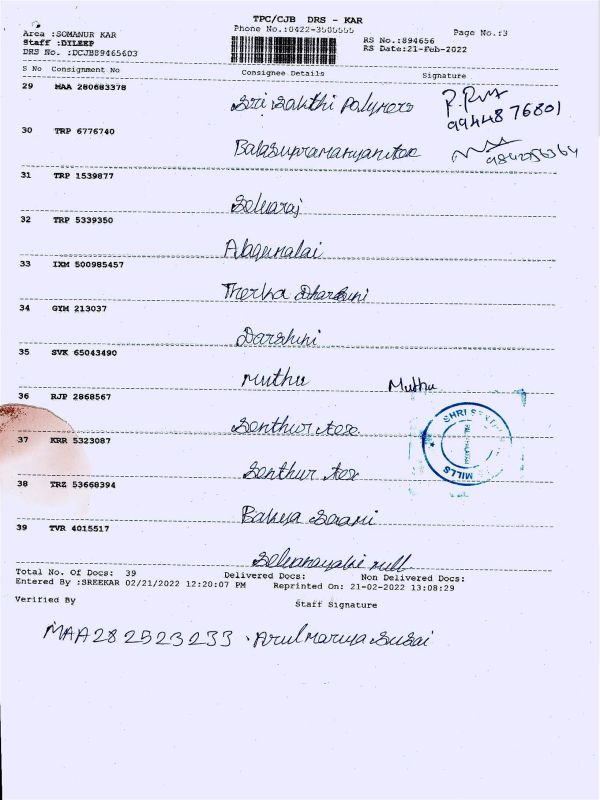 TPC/CJB DRS - KAR
Area :SOMANUR KAR
Phone No.:0422-3505555
Page No.:3
Staff :DILEEP
RS No.:894656
DRS No. :DCJB89465603
RS Date:21-Feb-2022
S No Consignment No Consignee Details Signature
29 MAA 280683378
Sri Sakthi Polymers
9944876801
30 TRP 6776740
Balasupramaniyan tex
31 TRP 1539877
Selvaraj
32 TRP 5339350
Alagumalai
33 IXM 500985457
Dharshini
34 GYM 213037
Darshini
35 SVK 65043490
Muthu Muthu
36 RJP 2868567
Senthur tex
SHRI
MILLS
37 KRR 5323087
Senthur tex
38 TRZ 53668394
39 TVR 4015517
mill
Total No. Of Docs: 39 Delivered Docs: Non Delivered Docs:
Entered By :SREEKAR 02/21/2022 12:20:07 PM Reprinted On: 21-02-2022 13:08:29
Verified By
Staff Signature
MAA282523233 . Arul mariya susai